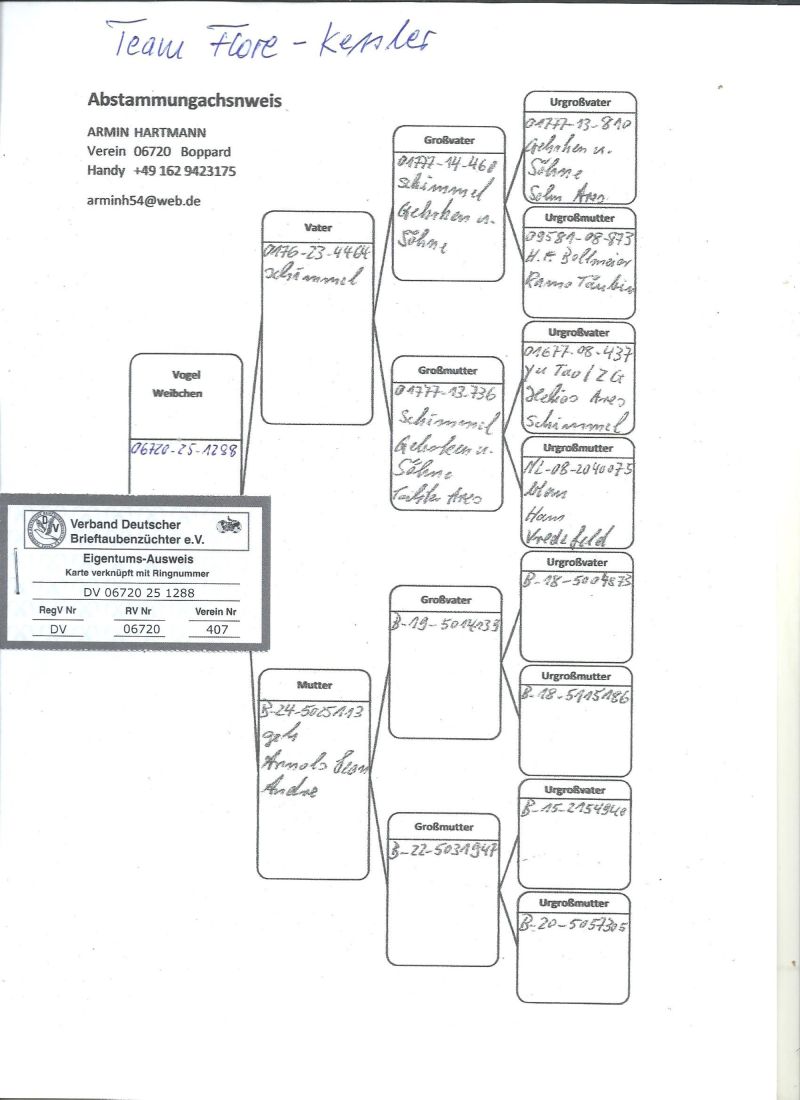 Team Flore - Kessler
Abstammungachsnweis
ARMIN HARTMANN
Verein 06720 Boppard
Handy +49 162 9423175
arminh54@web.de
Vogel
Weibchen
06720-25-1288
Verband Deutscher
Brieftaubenzüchter e.V.
Eigentums-Ausweis
Karte verknüpft mit Ringnummer
DV 06720 25 1288
RegV Nr RV Nr Verein Nr
DV 06720 407
Vater
0176-23-4464
Schimmel
Mutter
B-24-5025113
geh
Arnols
Andre
Großvater
01777-14-460
Schimmel
Söhne
Großmutter
01777-13-736
Schimmel
Söhne
Ares
Großvater
B-19-5014139
Großmutter
B-22-5031947
Urgroßvater
01777-13-810
Söhne
Sohn Ares
Urgroßmutter
09581-08-873
H.F. Bollmeier
Täubin
Urgroßvater
01677-08-437
Yu Tao / ZG
Helios Ares
Schimmel
Urgroßmutter
NL-08-2040075
Hans
Vredefeld
Urgroßvater
B-18-5004873
Urgroßmutter
B-18-5115186
Urgroßvater
B-15-2154940
Urgroßmutter
B-20-5057305